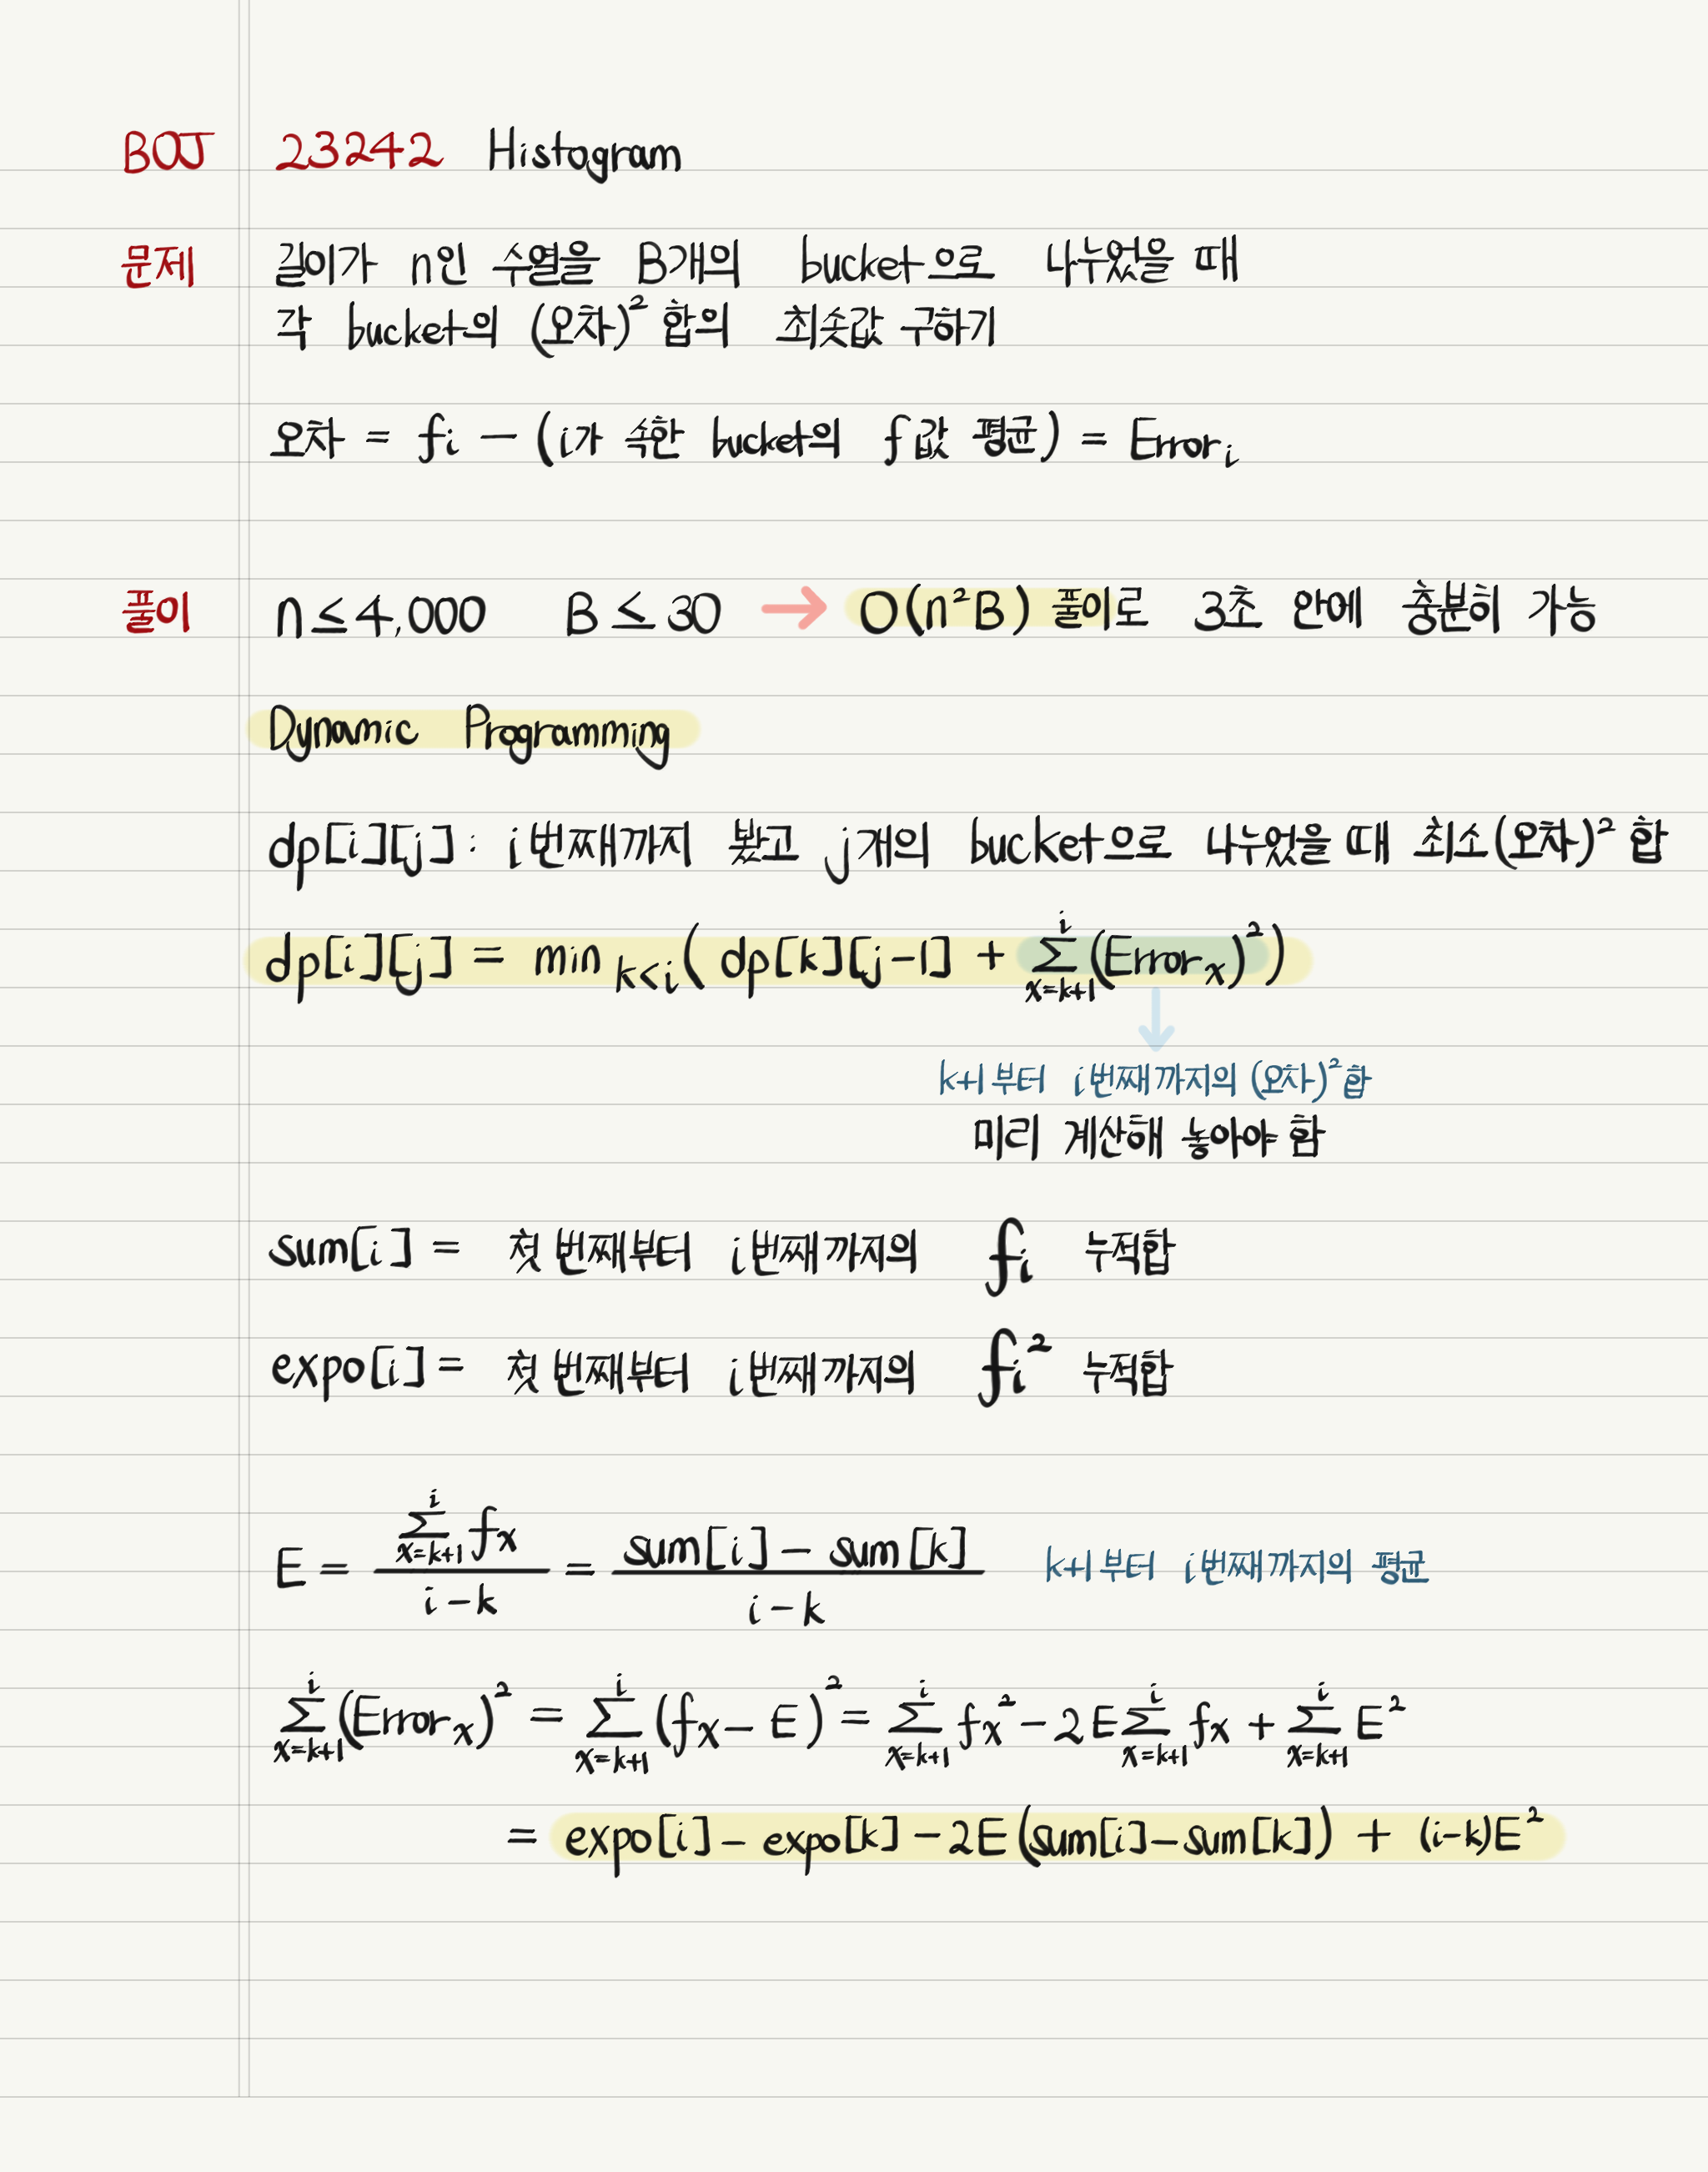 BOJ 23242 Histogram
문제 길이가 n인 수열을 B개의 bucket으로 나누었을 때
각 bucket의 (오차)² 합의 최솟값 구하기
오차 = fᵢ - (i가 속한 bucket의 f값 평균) = Errorᵢ
풀이 n ≤ 4,000 B ≤ 30 → O(n²B) 풀이로 3초 안에 충분히 가능
Dynamic Programming
dp[i][j] : i번째까지 봤고 j개의 bucket으로 나누었을 때 최소(오차)² 합
dp[i][j] = min k<i ( dp[k][j-1] + Σ_{x=k+1}^{i} (Errorₓ)² )
k+1부터 i번째까지의 (오차)²합
미리 계산해 놓아야 함
sum[i] = 첫 번째부터 i번째까지의 fᵢ 누적합
expo[i] = 첫 번째부터 i번째까지의 fᵢ² 누적합
E = (Σ_{x=k+1}^{i} fₓ) / (i-k) = (sum[i] - sum[k]) / (i-k) k+1부터 i번째까지의 평균
Σ_{x=k+1}^{i} (Errorₓ)² = Σ_{x=k+1}^{i} (fₓ - E)² = Σ_{x=k+1}^{i} fₓ² - 2E Σ_{x=k+1}^{i} fₓ + Σ_{x=k+1}^{i} E²
= expo[i] - expo[k] - 2E(sum[i] - sum[k]) + (i-k)E²